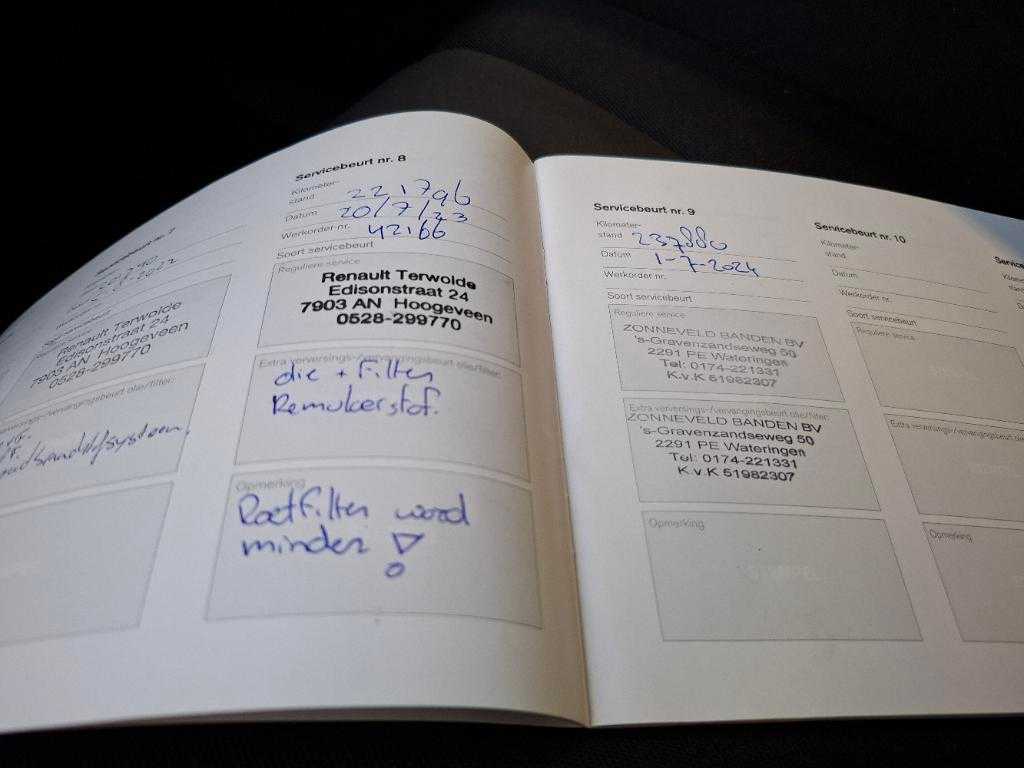 Servicebeurt nr. 7
2022
Renault Terwolde
Edisonstraat 24
7903 AN Hoogeveen
0528-299770
Servicebeurt nr. 8
Kilometer-
stand 221796
Datum 20/7/23
Werkorder-nr. 42166
Soort servicebeurt
Reguliere service
Renault Terwolde
Edisonstraat 24
7903 AN Hoogeveen
0528-299770
Extra verversings-/vervangingsbeurt olie/filter:
olie + Filter
Remvloeistof.
Opmerking
Roetfilter word
minder !
Servicebeurt nr. 9
Kilometer-
stand 237880
Datum 1-7-2024
Werkorder nr.
Soort servicebeurt
Reguliere service
ZONNEVELD BANDEN BV
's-Gravenzandseweg 50
2291 PE Wateringen
Tel: 0174-221331
K.v.K 51982307
Extra verversings-/vervangingsbeurt olie/filter:
ZONNEVELD BANDEN BV
's-Gravenzandseweg 50
2291 PE Wateringen
Tel: 0174-221331
K.v.K 51982307
Opmerking
STEMPEL
Servicebeurt nr. 10
Kilometer-
stand
Datum
Werkorder nr.
Soort servicebeurt
Reguliere service
Extra verversings-/vervangingsbeurt
Opmerking